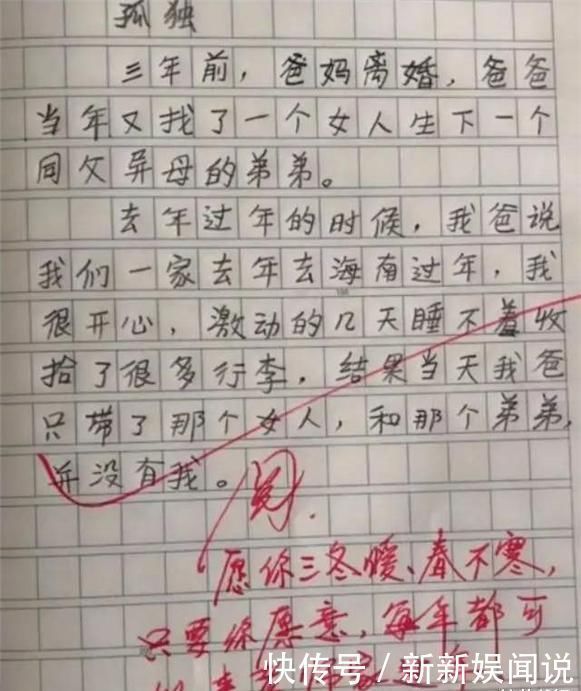 孤独
三年前，爸妈离婚，爸爸
当年又找了一个女人生下一个
同父异母的弟弟。
去年过年的时候，我爸说
我们一家去年去海南过年，我
很开心，激动的几天睡不着收
拾了很多行李，结果当天我爸
只带了那个女人，和那个弟弟，
并没有我。
阅.
愿你三冬暖、春不寒，
只要你愿意，每年都可
快传号/新新娱闻说